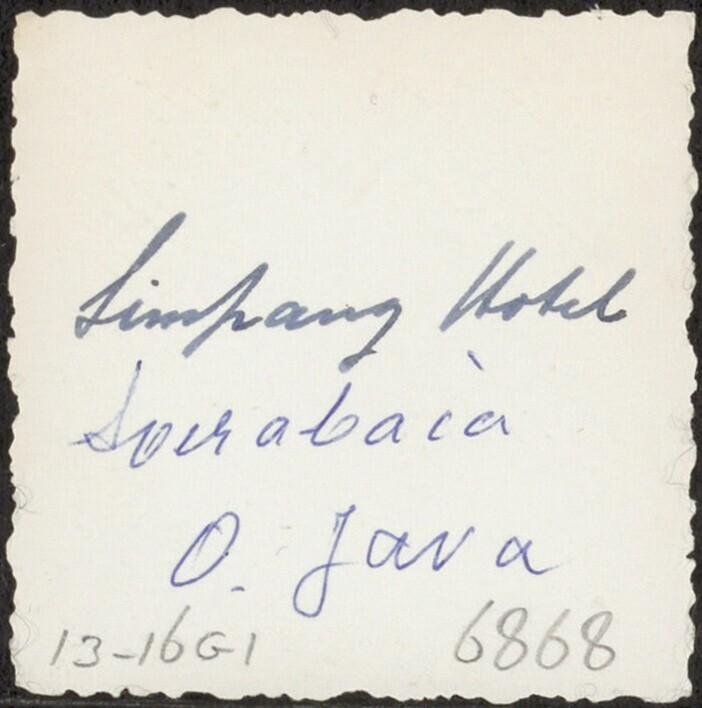 Simpang Hotel
Soerabaia
O. Java
13-16G1 6868